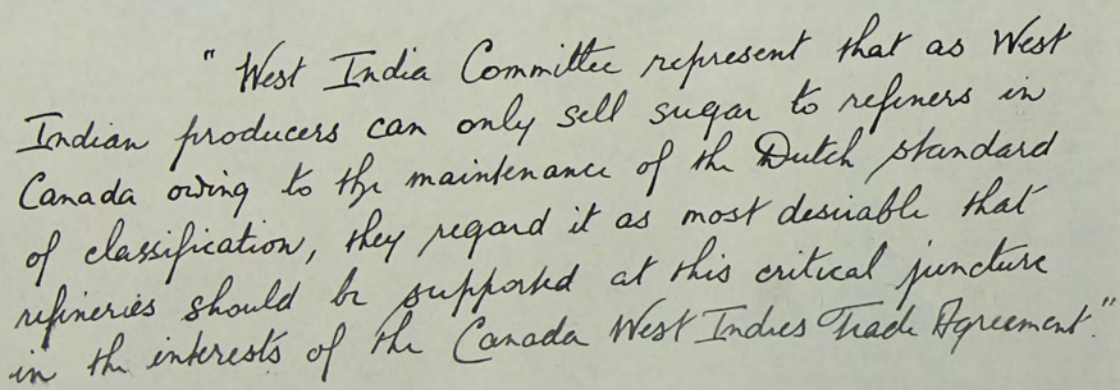 " West India Committee represent that as West
Indian producers can only sell sugar to refiners in
Canada owing to the maintenance of the Dutch standard
of classification, they regard it as most desirable that
refineries should be supported at this critical juncture
in the interests of the Canada West Indies Trade Agreement."